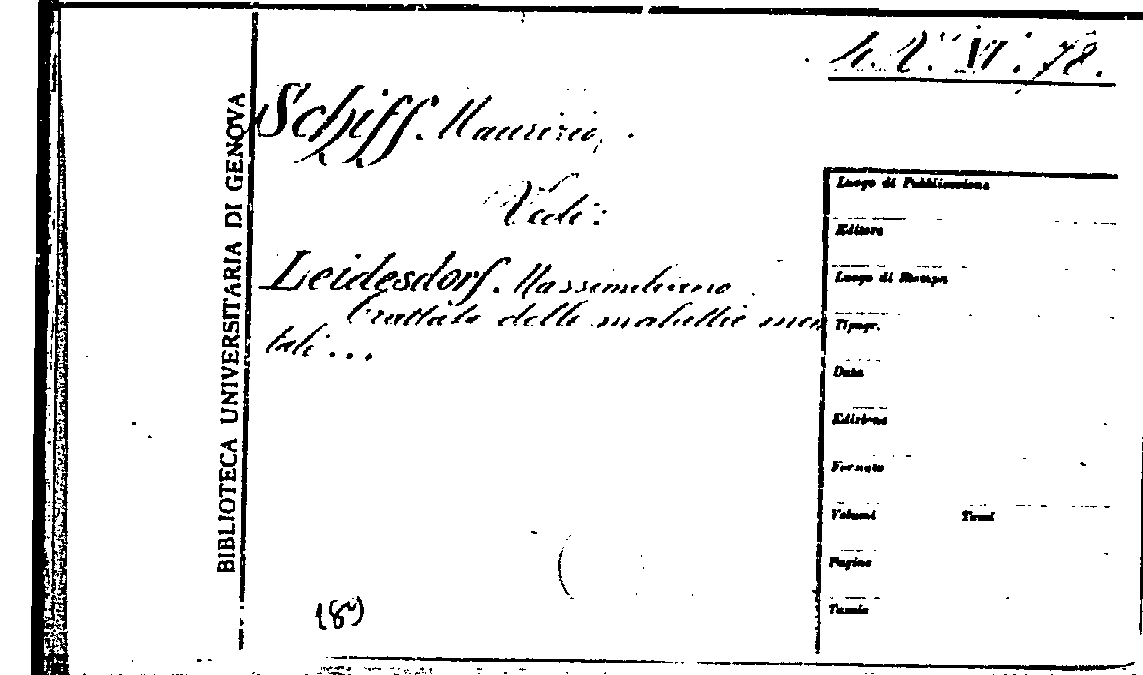 VI. 78.
BIBLIOTECA UNIVERSITARIA DI GENOVA
Schiff. Maurizio,
Vedi:
Leidesdorf. Massimiliano
trattato delle malattie men
tali...
Luogo di Pubblicazione
Editore
Luogo di Stampa
Tipogr.
Data
Edizione
Formato
Volumi Tomi
Pagine
Tavole
(8º)